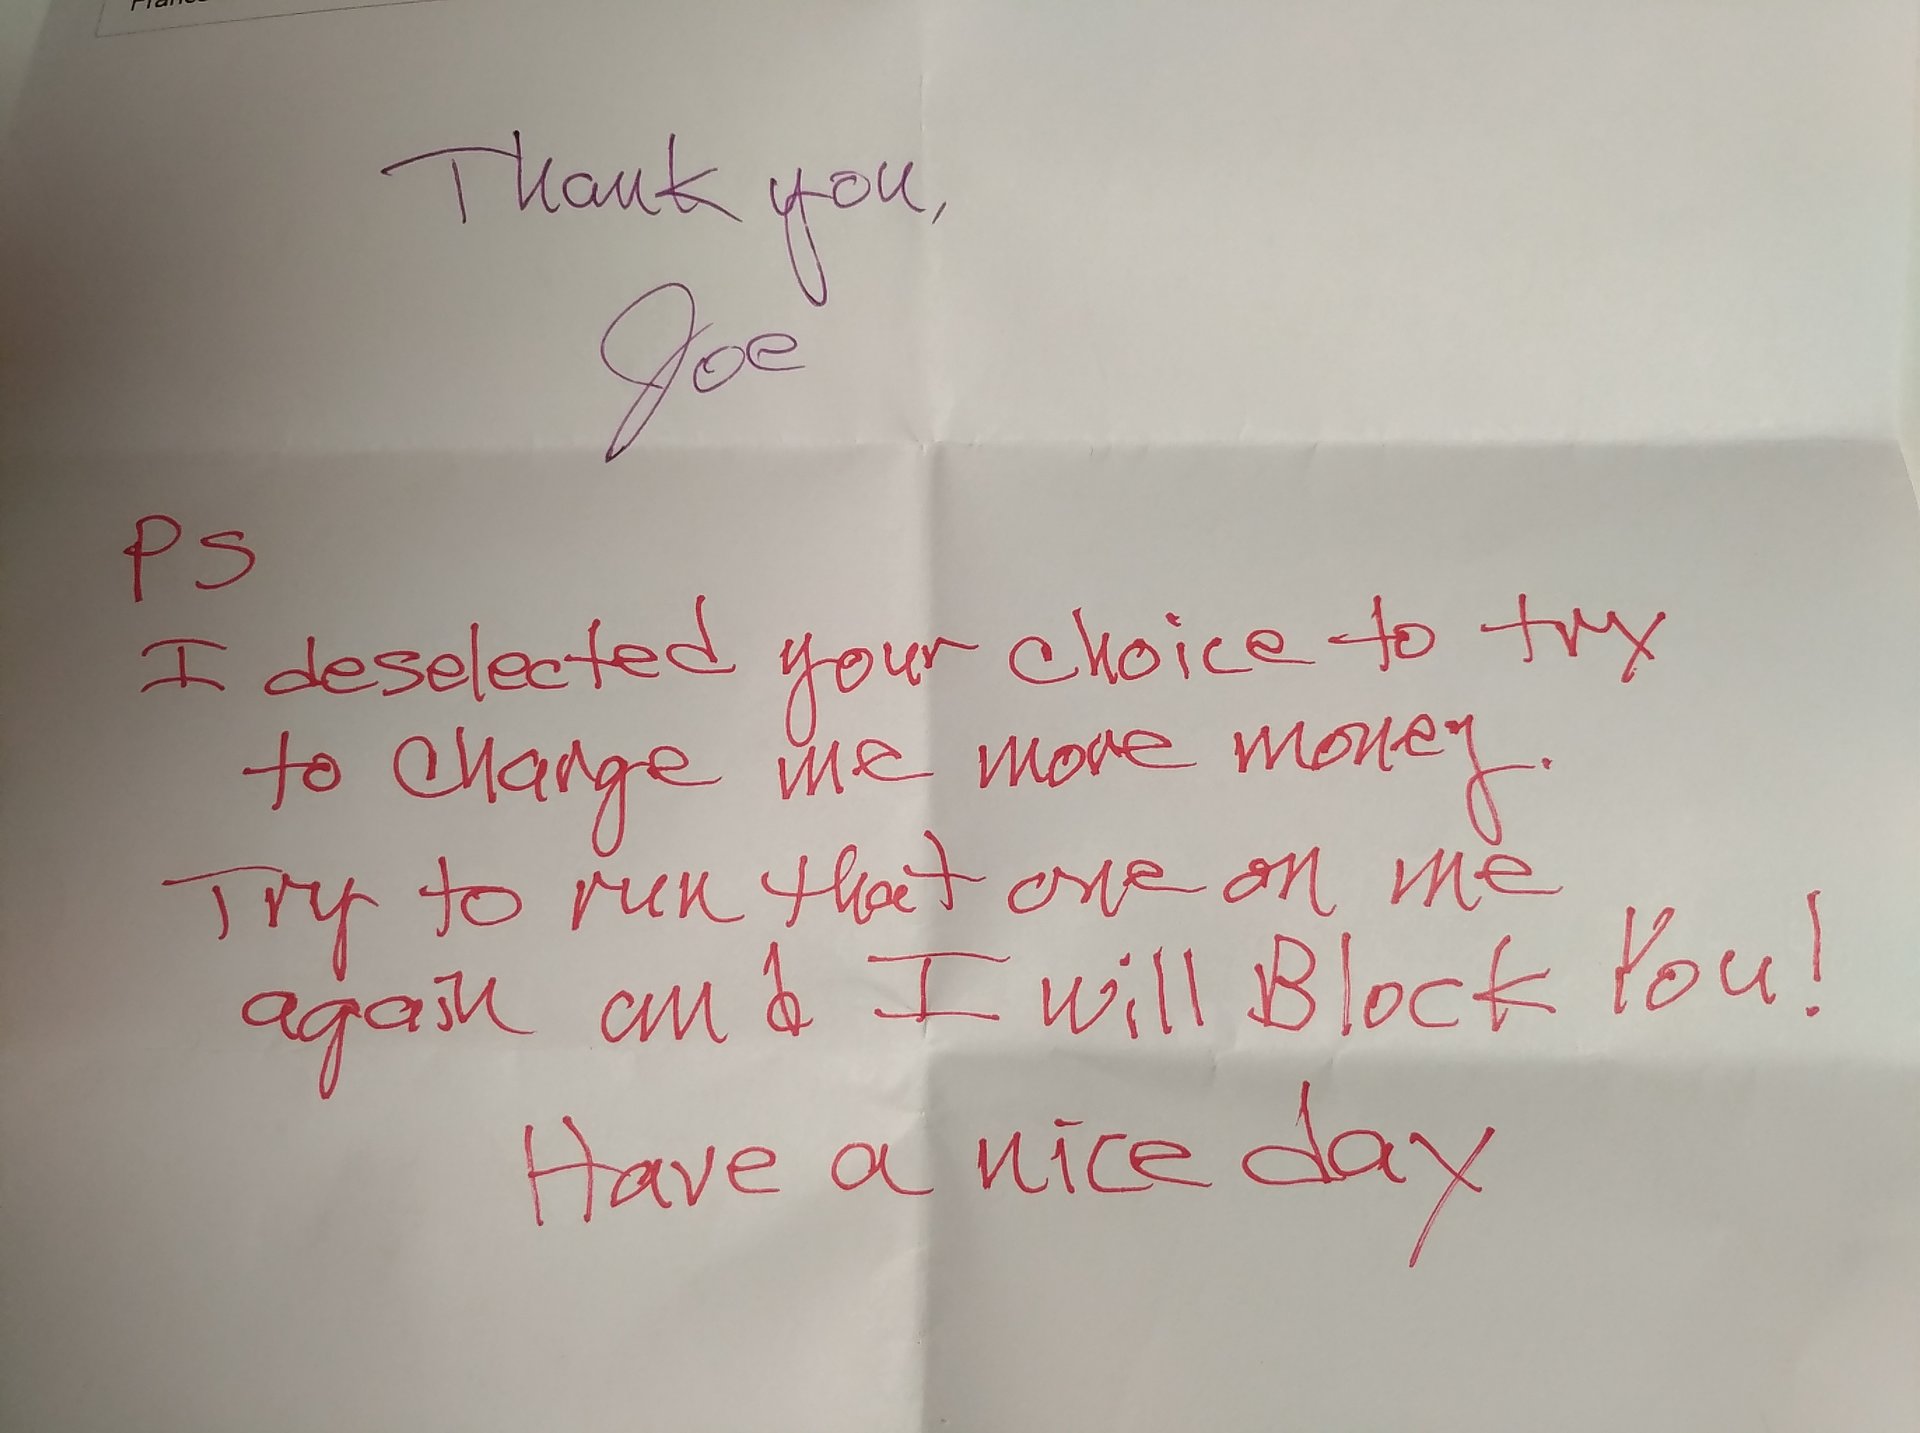 Thank you,
Joe
PS
I deselected your choice to try
to charge me more money.
Try to run that one on me
again and I will Block You!
Have a nice day